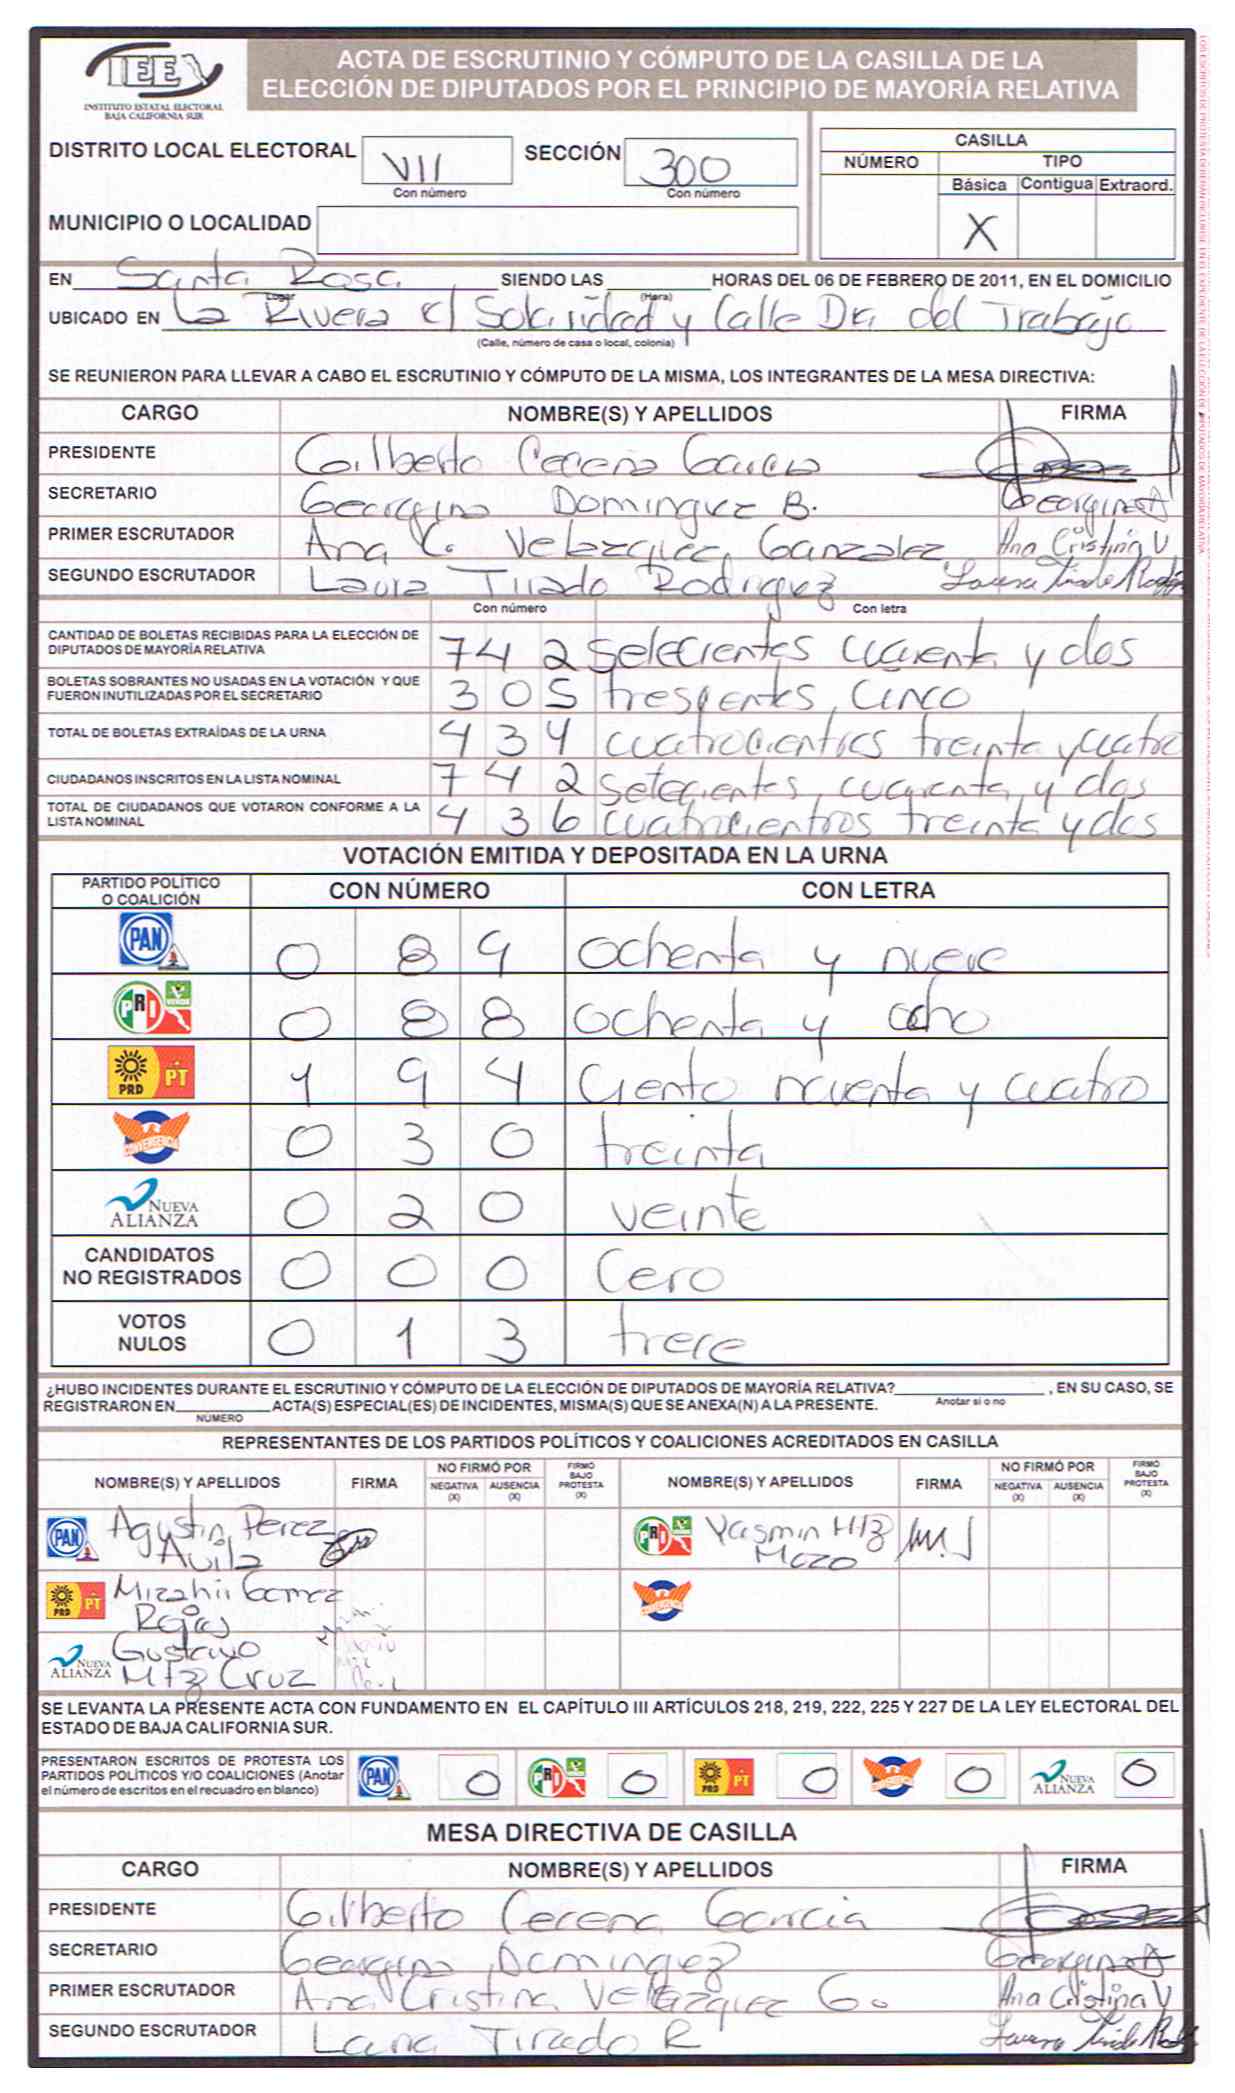 IEE
INSTITUTO ESTATAL ELECTORAL
BAJA CALIFORNIA SUR
ACTA DE ESCRUTINIO Y CÓMPUTO DE LA CASILLA DE LA
ELECCIÓN DE DIPUTADOS POR EL PRINCIPIO DE MAYORÍA RELATIVA
DISTRITO LOCAL ELECTORAL VII SECCIÓN 300
Con número Con número
CASILLA
NÚMERO TIPO
Básica Contigua Extraord.
X
MUNICIPIO O LOCALIDAD
EN Santa Rosa SIENDO LAS HORAS DEL 06 DE FEBRERO DE 2011, EN EL DOMICILIO
Lugar (Hora)
UBICADO EN La Rivera e/ Solaridad y Calle Dia del Trabajo
(Calle, número de casa o local, colonia)
SE REUNIERON PARA LLEVAR A CABO EL ESCRUTINIO Y CÓMPUTO DE LA MISMA, LOS INTEGRANTES DE LA MESA DIRECTIVA:
CARGO NOMBRE(S) Y APELLIDOS FIRMA
PRESIDENTE Gilberto Cereña Garcia
SECRETARIO Georgina Dominguez B. Georgina
PRIMER ESCRUTADOR Ana C. Velazquez Ganzalez Ana Cristina V
SEGUNDO ESCRUTADOR Laura Tirado Rodriguez
Con número Con letra
CANTIDAD DE BOLETAS RECIBIDAS PARA LA ELECCIÓN DE
DIPUTADOS DE MAYORÍA RELATIVA 742 setecientas cuarenta y dos
BOLETAS SOBRANTES NO USADAS EN LA VOTACIÓN Y QUE
FUERON INUTILIZADAS POR EL SECRETARIO 305 trescientas, cinco
TOTAL DE BOLETAS EXTRAÍDAS DE LA URNA 434 cuatrocientas treinta y cuatro
CIUDADANOS INSCRITOS EN LA LISTA NOMINAL 742 setecientas, cuarenta, y dos
TOTAL DE CIUDADANOS QUE VOTARON CONFORME A LA
LISTA NOMINAL 436 cuatrocientros treinta y dos
VOTACIÓN EMITIDA Y DEPOSITADA EN LA URNA
PARTIDO POLÍTICO
O COALICIÓN CON NÚMERO CON LETRA
PAN 0 8 9 ochenta y nueve
PRI VERDE 0 8 8 ochenta y ocho
PRD PT 1 9 4 ciento noventa y cuatro
CONVERGENCIA 0 3 0 treinta
NUEVA ALIANZA 0 2 0 veinte
CANDIDATOS
NO REGISTRADOS 0 0 0 Cero
VOTOS
NULOS 0 1 3 trece
¿HUBO INCIDENTES DURANTE EL ESCRUTINIO Y CÓMPUTO DE LA ELECCIÓN DE DIPUTADOS DE MAYORÍA RELATIVA? , EN SU CASO, SE
Anotar si o no
REGISTRARON EN ACTA(S) ESPECIAL(ES) DE INCIDENTES, MISMA(S) QUE SE ANEXA(N) A LA PRESENTE.
NÚMERO
REPRESENTANTES DE LOS PARTIDOS POLÍTICOS Y COALICIONES ACREDITADOS EN CASILLA
NOMBRE(S) Y APELLIDOS FIRMA NO FIRMÓ POR NEGATIVA (X) AUSENCIA (X) FIRMÓ BAJO PROTESTA (X) NOMBRE(S) Y APELLIDOS FIRMA NO FIRMÓ POR NEGATIVA (X) AUSENCIA (X) FIRMÓ BAJO PROTESTA (X)
PAN Agustin Perez
Avila
PRI VERDE Yasmin Htz
Mozo
PRD PT Mizahii Gomez
Rojas
CONVERGENCIA
NUEVA ALIANZA Gustavo
Mtz Cruz
SE LEVANTA LA PRESENTE ACTA CON FUNDAMENTO EN EL CAPÍTULO III ARTÍCULOS 218, 219, 222, 225 Y 227 DE LA LEY ELECTORAL DEL
ESTADO DE BAJA CALIFORNIA SUR.
PRESENTARON ESCRITOS DE PROTESTA LOS
PARTIDOS POLÍTICOS Y/O COALICIONES (Anotar
el número de escritos en el recuadro en blanco)
PAN 0 PRI VERDE 0 PRD PT 0 CONVERGENCIA 0 NUEVA ALIANZA 0
MESA DIRECTIVA DE CASILLA
CARGO NOMBRE(S) Y APELLIDOS FIRMA
PRESIDENTE Gilberto Cerena Garcia
SECRETARIO Georgina Dominguez Georgina
PRIMER ESCRUTADOR Ana Cristina Velazquez G. Ana Cristina V
SEGUNDO ESCRUTADOR Laura Tirado R